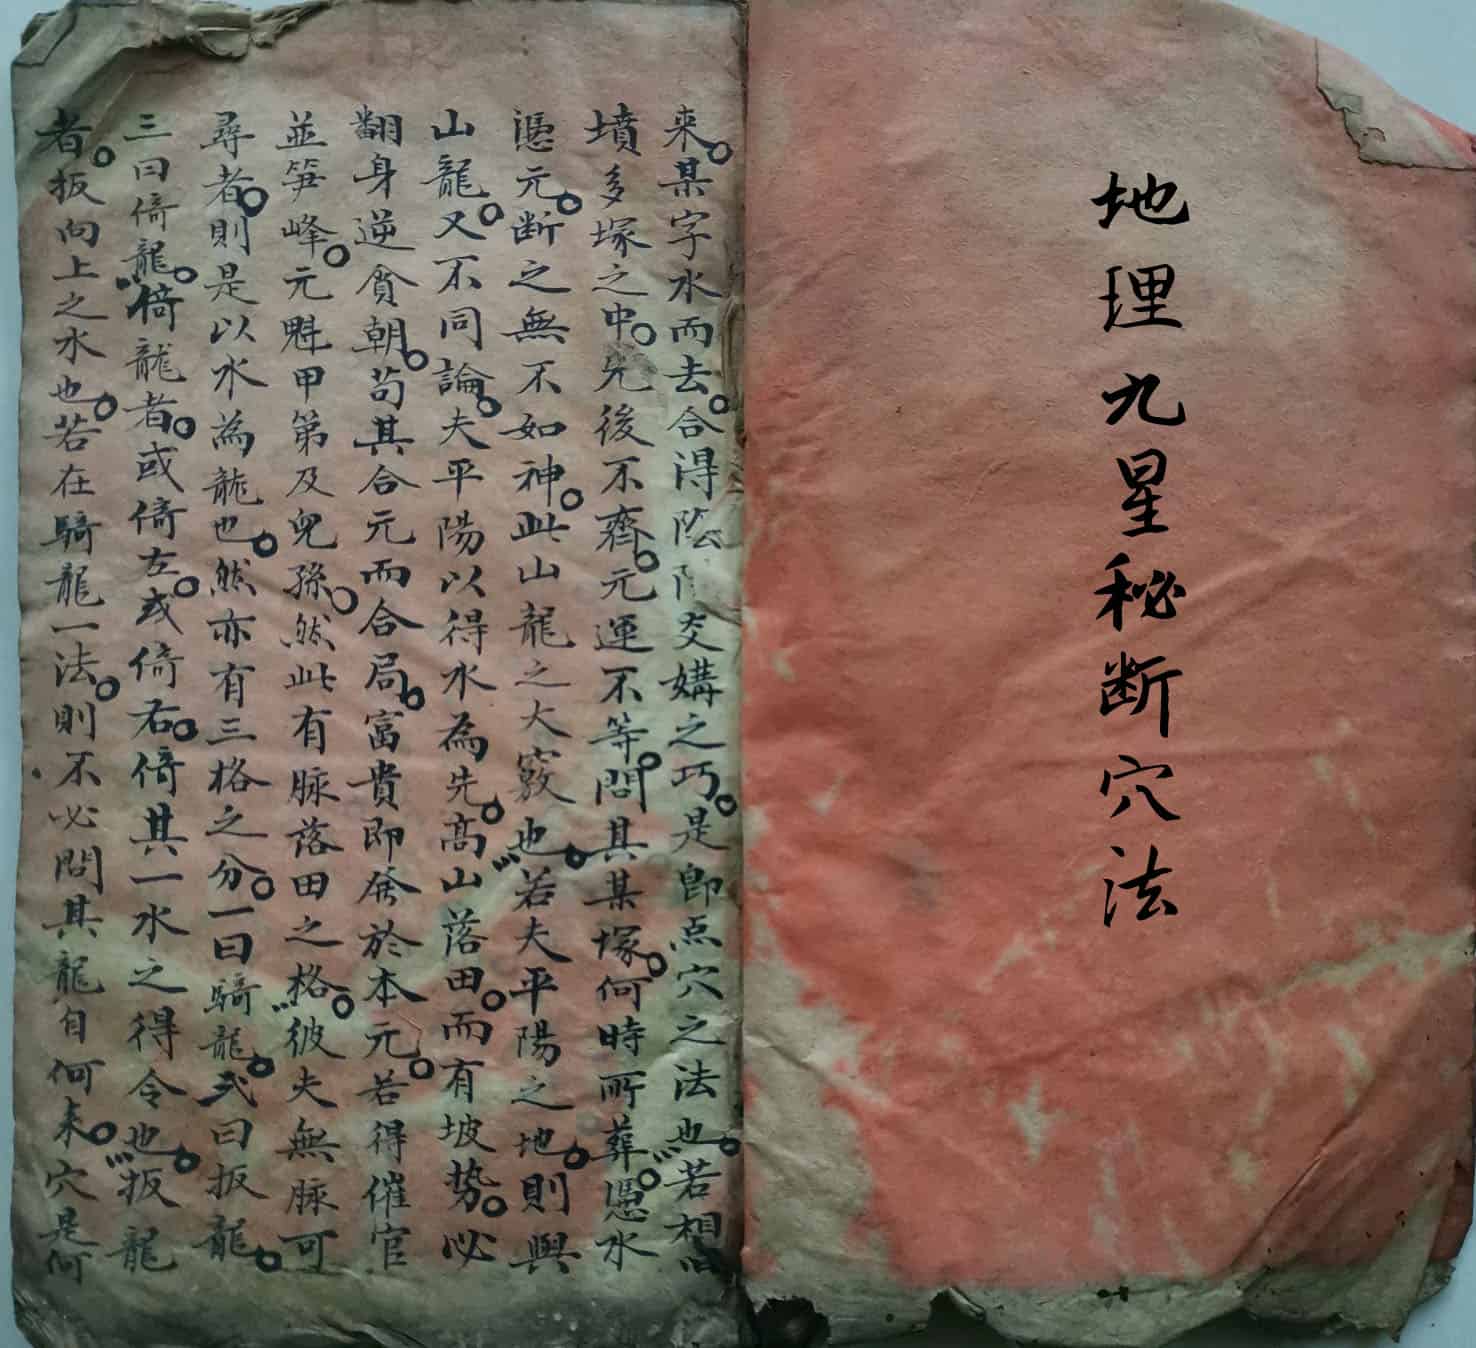 地理九星秘断穴法
来。某字水而去。合得陰陽交媾之巧。是即点穴之法也。若相
墳多塚之中。先後不齊。元運不等。問其某塚。何時所葬。憑水
憑元。断之無不如神。此山龍之大竅也。若夫平陽之地。則與
山龍。又不同論。夫平陽以得水為先。高山落田。而有坡势。必
翻身逆貪朝。苟其合元而合局。富貴即發於本元。若得催官
並笋峰。元魁甲第及兒孫。然此有脉落田之格。彼夫無脉可
尋者。則是以水為龍也。然亦有三格之分。一曰騎龍。弍曰扳龍。
三曰倚龍。倚龍者。或倚左。或倚右。倚其一水之得令也。扳龍
者。扳向上之水也。若在騎龍一法。則不必問其龍自何来。穴是何